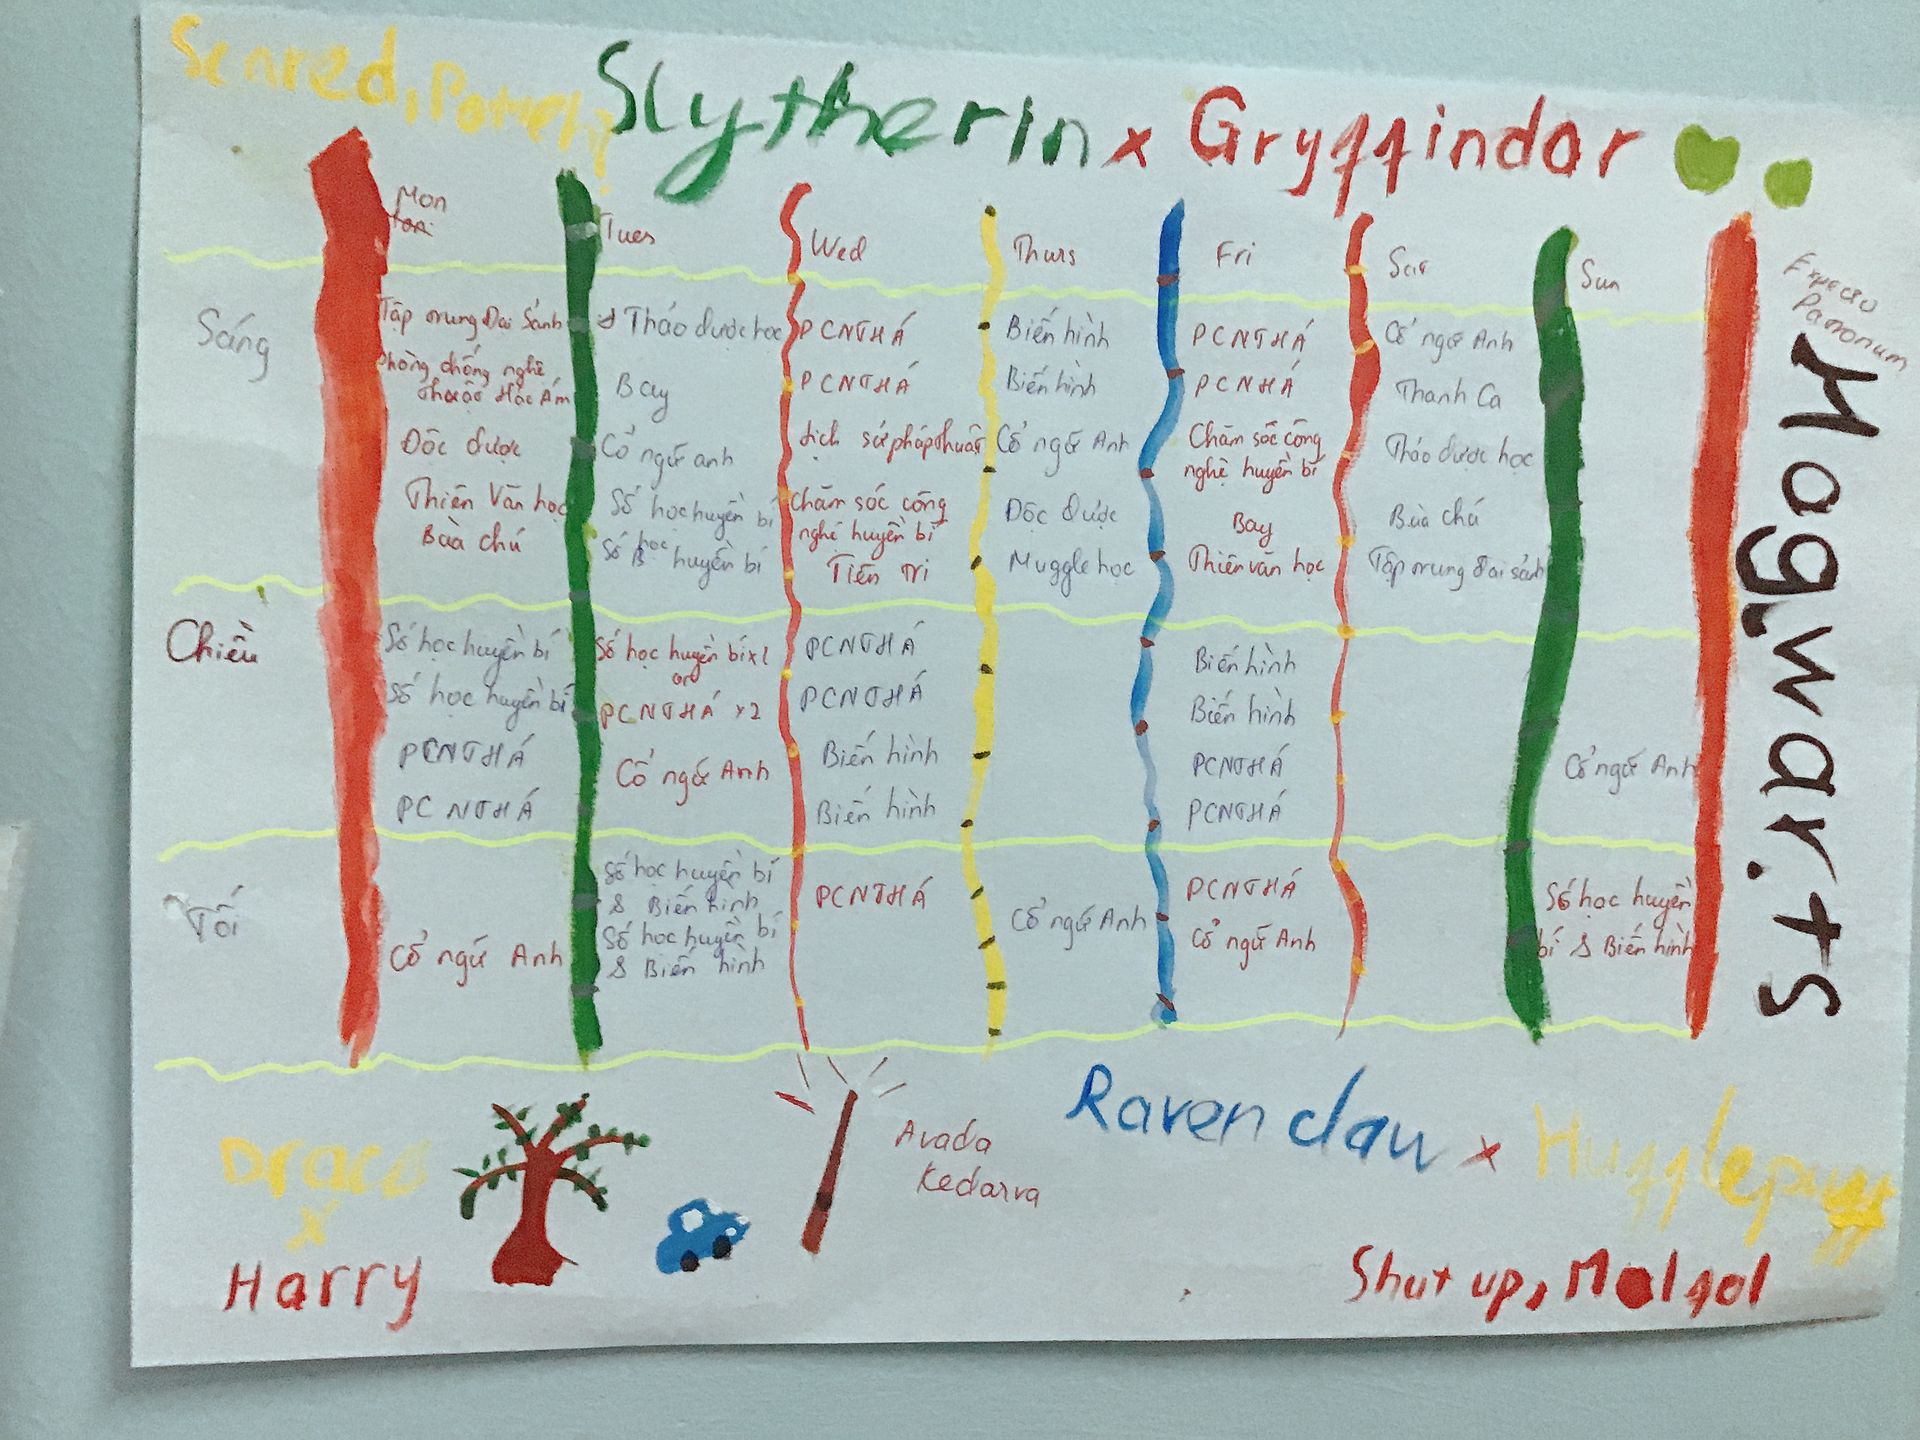 Scared, Potter?
Slytherin x Gryffindor
Mon
Tues
Wed
Thurs
Fri
Sat
Sun
Expecto
Patronum
Hogwarts
Sáng
Tập trung Đại Sảnh
Phòng chống nghệ
thuật Hắc Ám
Độc dược
Thiên Văn học
Bùa chú
Thảo dược học
Bay
Cổ ngữ anh
Số học huyền bí
Số học huyền bí
PCNTHÁ
PCNTHÁ
Lịch sử pháp thuật
Chăm sóc công
nghê huyền bí
Tiên tri
Biến hình
Biến hình
Cổ ngữ Anh
Độc dược
Muggle học
PCNTHÁ
PCNHÁ
Chăm sóc công
nghê huyền bí
Bay
Thiên văn học
Cổ ngữ Anh
Thanh Ca
Thảo dược học
Bùa chú
Tập trung đại sảnh
Chiều
Số học huyền bí
Số học huyền bí
PCNTHÁ
PCNTHÁ
Số học huyền bí x1
or
PCNTHÁ x2
Cổ ngữ Anh
PCNTHÁ
PCNTHÁ
Biến hình
Biến hình
Biến hình
Biến hình
PCNTHÁ
PCNTHÁ
Cổ ngữ Anh
Tối
Cổ ngữ Anh
Số học huyền bí
& Biến hình
Số học huyền bí
& Biến hình
PCNTHÁ
Cổ ngữ Anh
PCNTHÁ
Cổ ngữ Anh
Số học huyền
bí & Biến hình
Draco
x
Harry
Avada
Kedarva
Ravenclaw x Hufflepuff
Shut up, Malfol